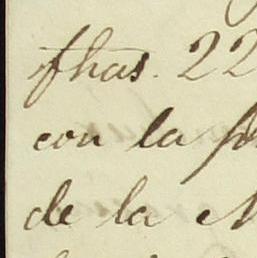 fhas. 22
con la
de la